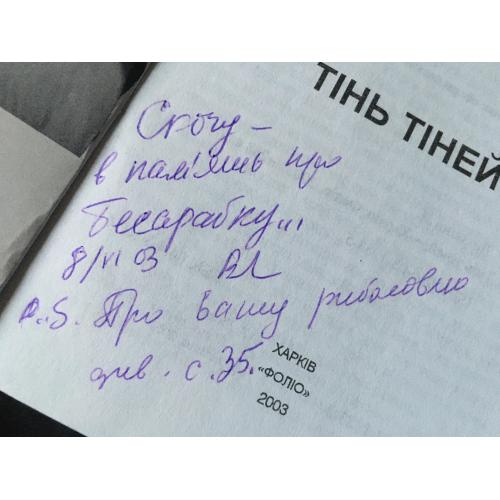 ТІНЬ ТІНЕЙ
Скочу –
в пам'ять про
Бесарабку...
8/VI 03
P.S. Про Вашу риболовлю
див. с. 35.
ХАРКІВ
«ФОЛІО»
2003